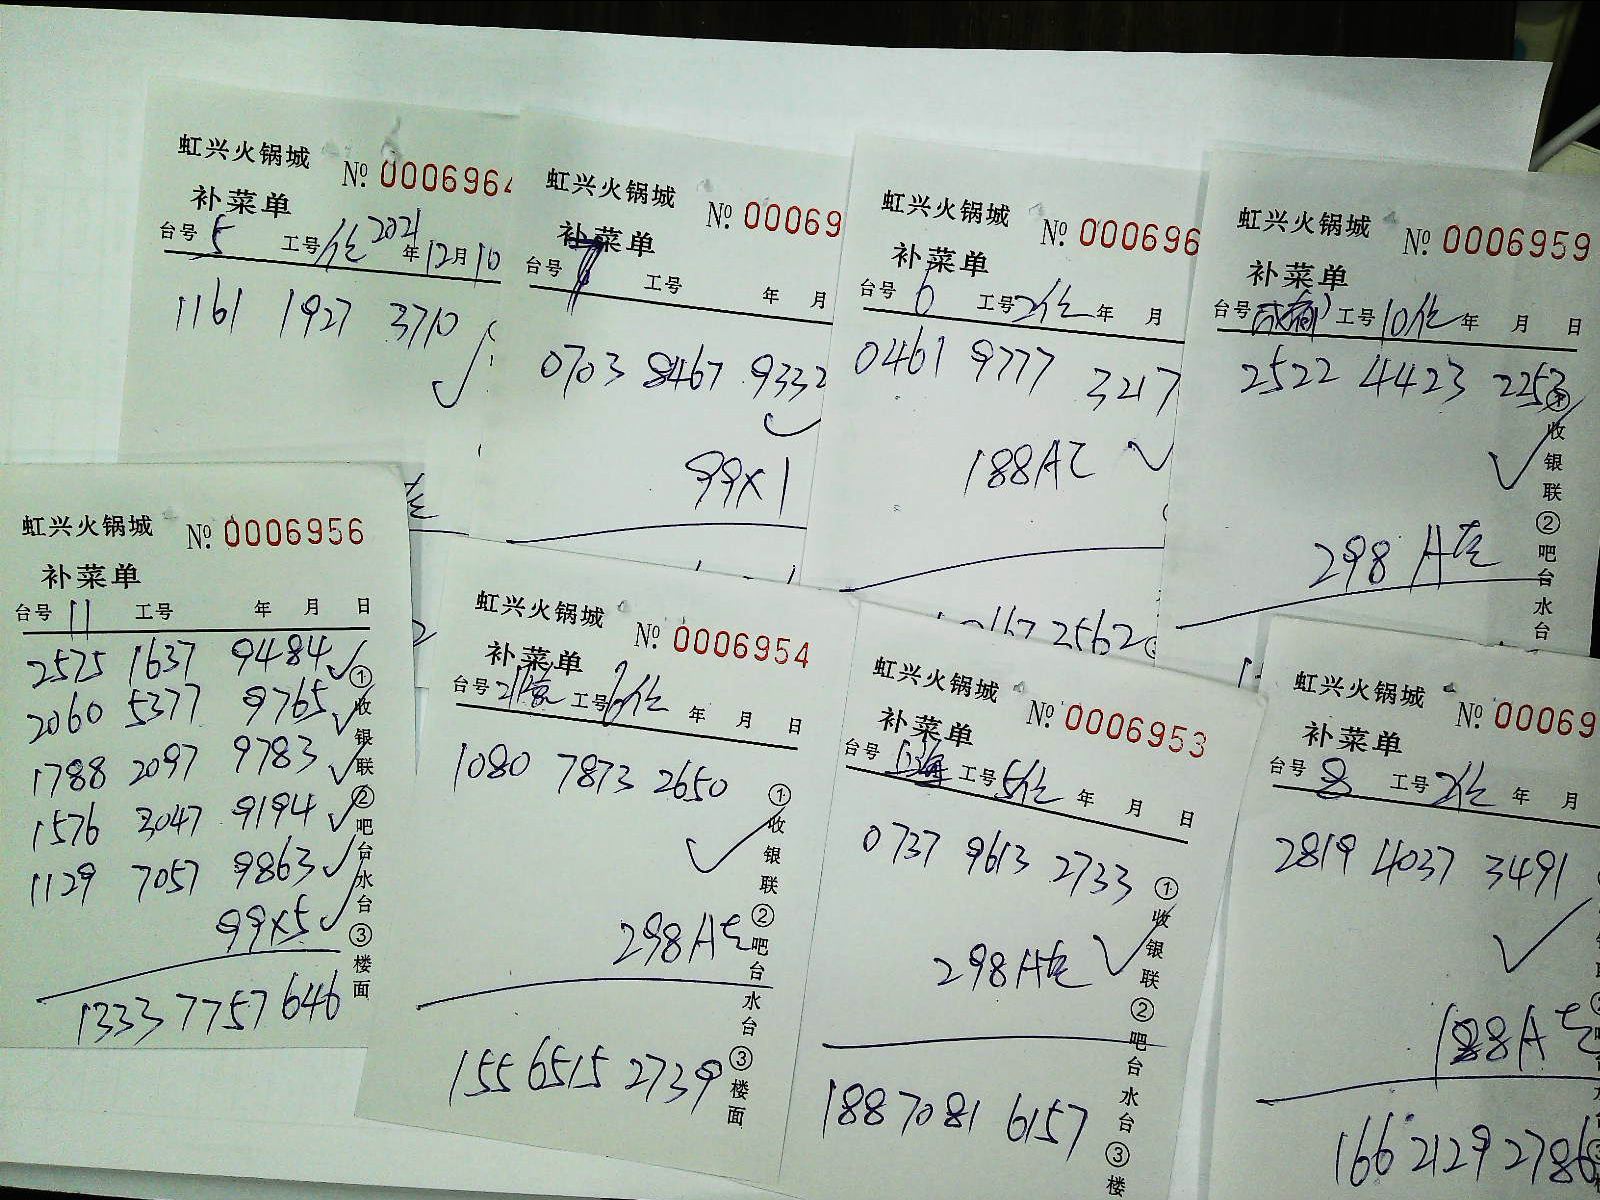 虹兴火锅城 № 0006964
补菜单
台号 5 工号 1位 2021年12月10
1161 1927 3710
虹兴火锅城 № 00069
补菜单
台号 工号 年 月
0703 8467 9332
99×1
虹兴火锅城 № 000696
补菜单
台号 6 工号 2位 年 月
0461 9777 3217
188A
2562
虹兴火锅城 № 0006959
补菜单
台号 成都 工号 10位 年 月 日
2522 4423 2253
298 A
①收银联②吧台水台
虹兴火锅城 № 0006956
补菜单
台号 11 工号 年 月 日
2575 1637 9484
2060 5377 9765
1788 2097 9783
1576 3047 9194
1129 7057 9863
99×5
1333 7757 646
①收银联②吧台水台③楼面
虹兴火锅城 № 0006954
补菜单
台号 工号 6位 年 月 日
1080 7873 2650
298A
155 6515 2739
①收银联②吧台水台③楼面
虹兴火锅城 № 0006953
补菜单
台号 上海 工号 5位 年 月 日
0737 9613 2733
298A
188 7081 6157
①收银联②吧台水台③楼
虹兴火锅城 № 00069
补菜单
台号 8 工号 2位 年 月
2819 4037 3491
188A
166 2129 2786